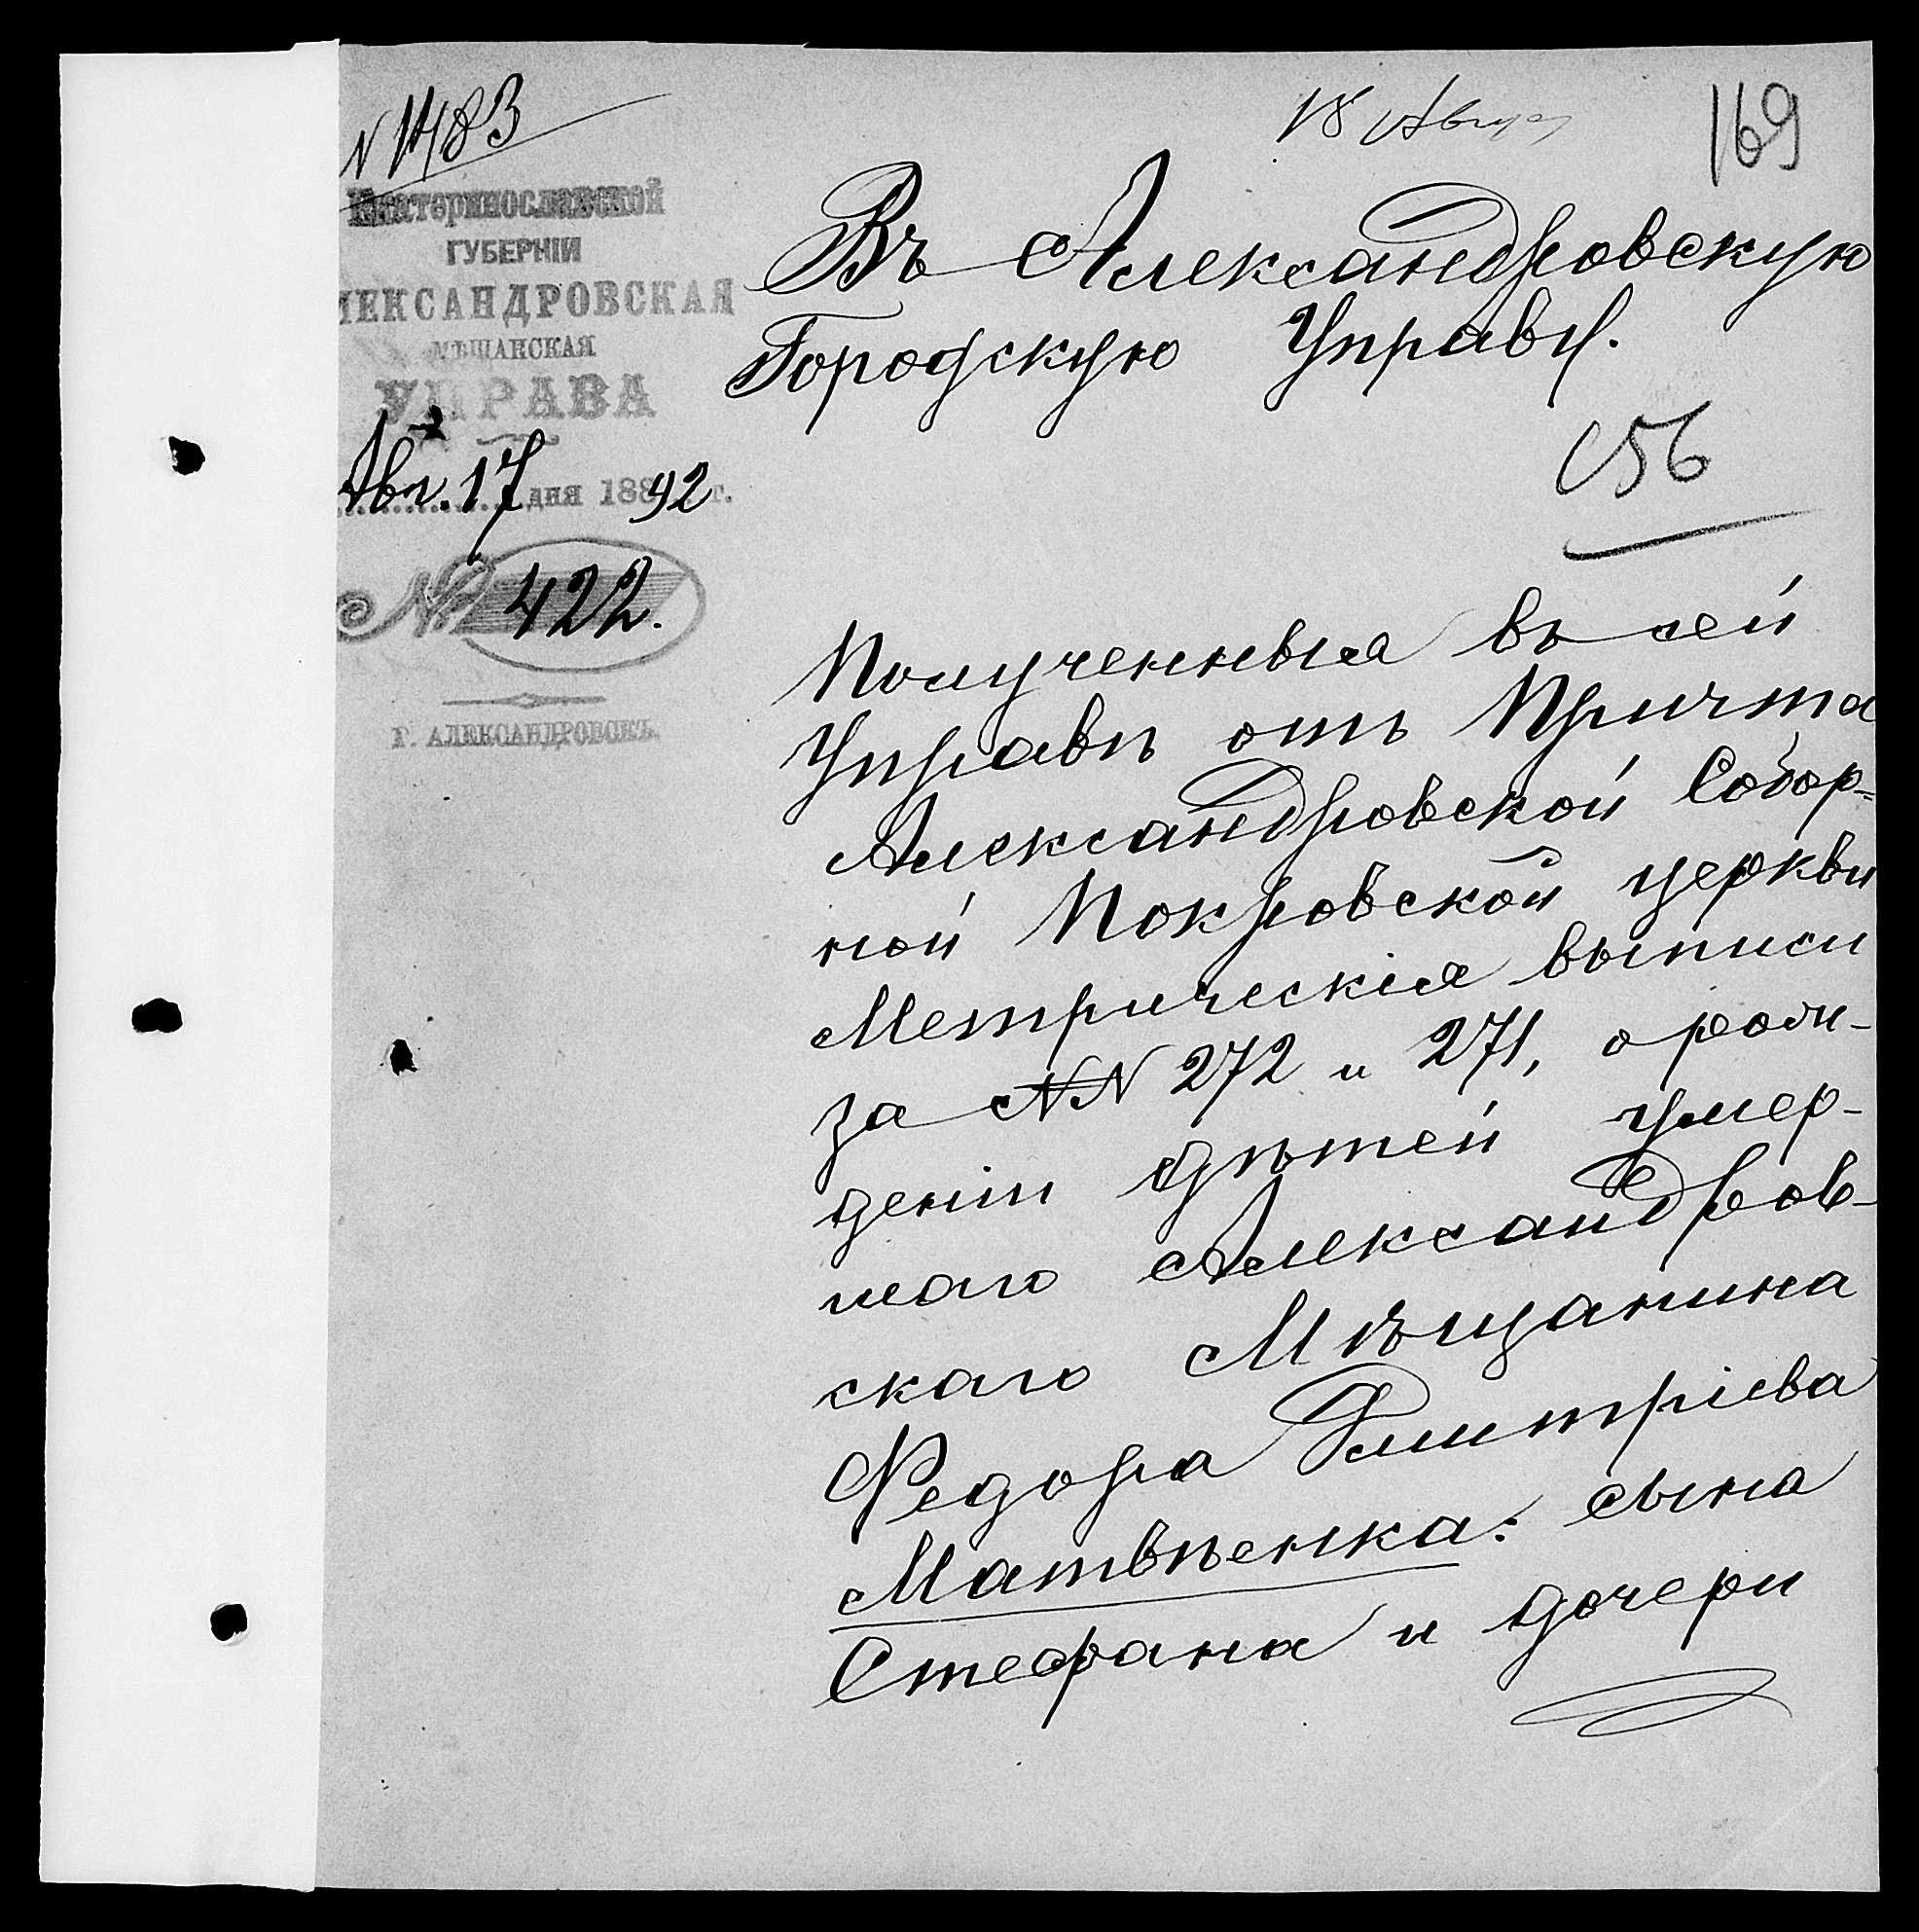 N 1483
18 Август
169
Екатеринославской
ГУБЕРНІИ
ЛЕКСАНДРОВСКАЯ
МѢЩАНСКАЯ
УПРАВА
Авг. 17 дня 188 92 г.
№ 422.
Г. АЛЕКСАНДРОВСКЪ.
Въ Александровскую
Городскую Управу.
156
Полученныя въ сей
Управѣ отъ Причта
Александровской Собор-
ной Покровской церкви
Метрическія выписи
за NN 272 и 271, о рож-
деніи дѣтей умер-
шаго Александров-
скаго Мѣщанина
Федора Дмитріева
Матвѣенка: сына
Стефана и дочери